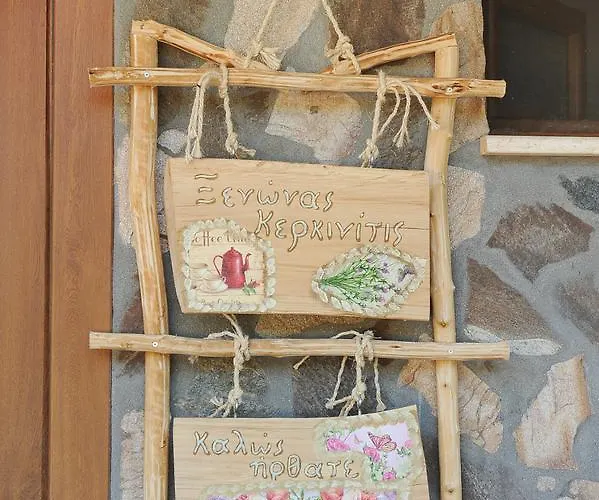 Ξενώνας
Κερκινίτις
Καλώς
ήρθατε